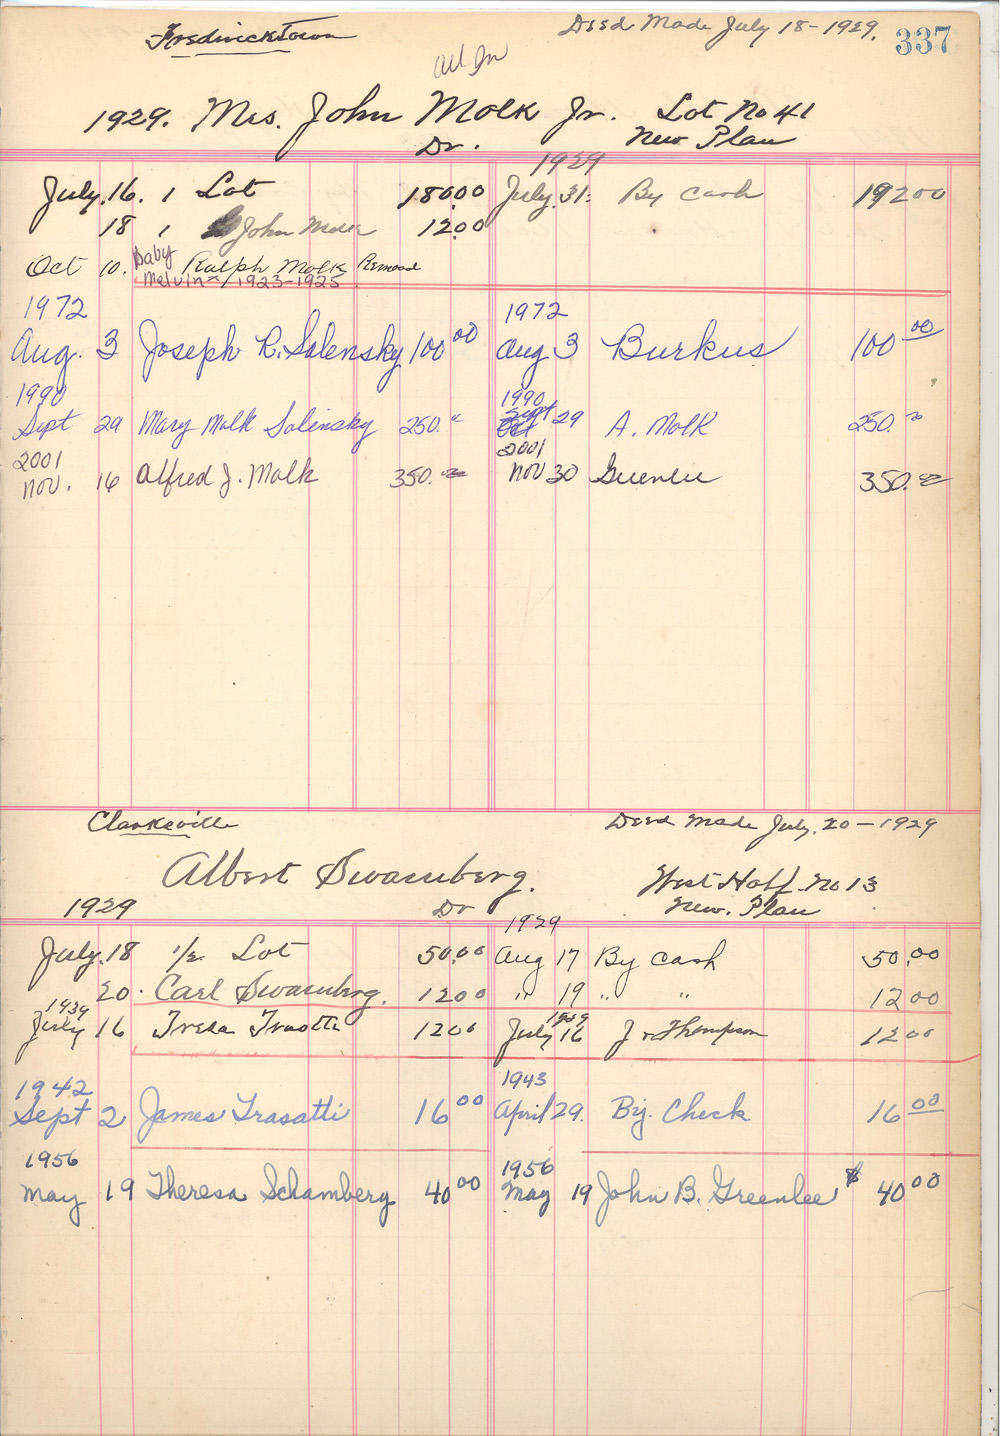 Fredricktown Deed Made July 18-1929. 337
All In
1929. Mrs. John Molk Jr. Lot No 41
Dr. New Plan
1929
July. 16. 1 Lot 180.00 July. 31. By cash 192.00
18 1 John Molk 12.00
Oct 10. Baby Ralph Molk Removed
Melvin 1923-1925
1972 1972
Aug. 3 Joseph R. Solensky 100 00 Aug 3 Burkus 100 00
1990 1990
Sept 29 Mary Molk Solensky 250. Sept 29 A. Molk 250.
2001 2001
Nov. 16 Alfred J. Molk 350. Nov 30 Greenlee 350.
Clarksville Deed Made July. 20-1929
Albert Swamberg. West Half No 13
1929 Dr New. Plan
1929
July. 18 1/2 Lot 50.00 Aug 17 By cash 50.00
20. Carl Swamberg. 12 00 " 19 " " 12 00
1939 1939
July 16 Tresa 12 00 July 16 J Thompson 12 00
1942 1943
Sept 2 James Trasatti 16 00 April 29. By. Check 16 00
1956 1956
May 19 Theresa Schamberg 40 00 May 19 John B. Greenlee $ 40 00